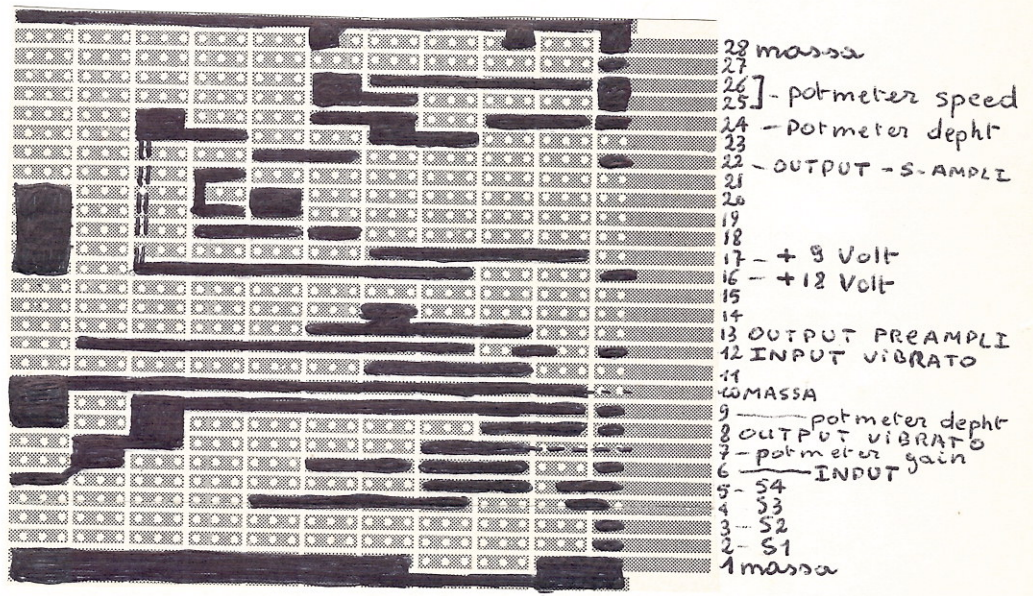 28 massa
27
26
25 ] - potmeter speed
24 - Potmeter depht
23
22 - OUTPUT - S-AMPLI
21
20
19
18
17 - + 9 Volt
16 - + 18 Volt
15
14
13 OUTPUT PREAMPLI
12 INPUT ViBRATO
11
10 MASSA
9 - potmeter depht
8 OUTPUT ViBRATO
7 - potmeter gain
6 - INPUT
5 - S4
4 S3
3 - S2
2 - S1
1 massa